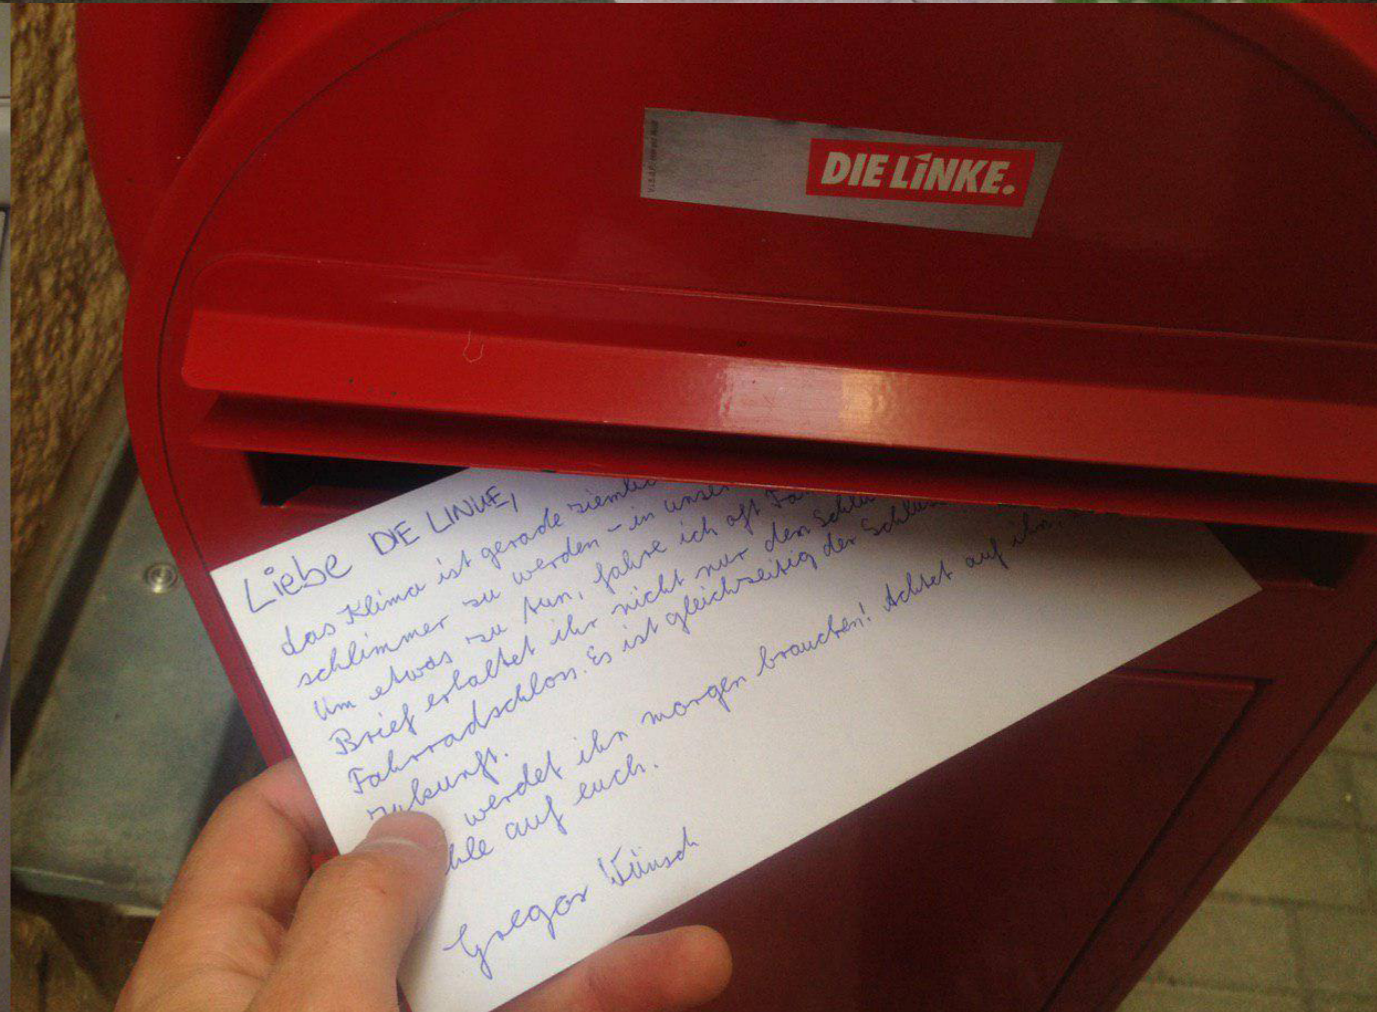 DIE LINKE.
Liebe DIE LINKE,
das Klima ist gerade ziemlic
schlimmer zu werden - in unser
Um etwas zu tun, fahre ich oft Fa
Brief erhaltet ihr nicht nur den Schlü
Fahrradschloss. Es ist gleichzeitig der Schlüss
Zukunft.
werdet ihn morgen brauchen! Achtet auf ihn,
hle auf euch.
Gregor Wünsch